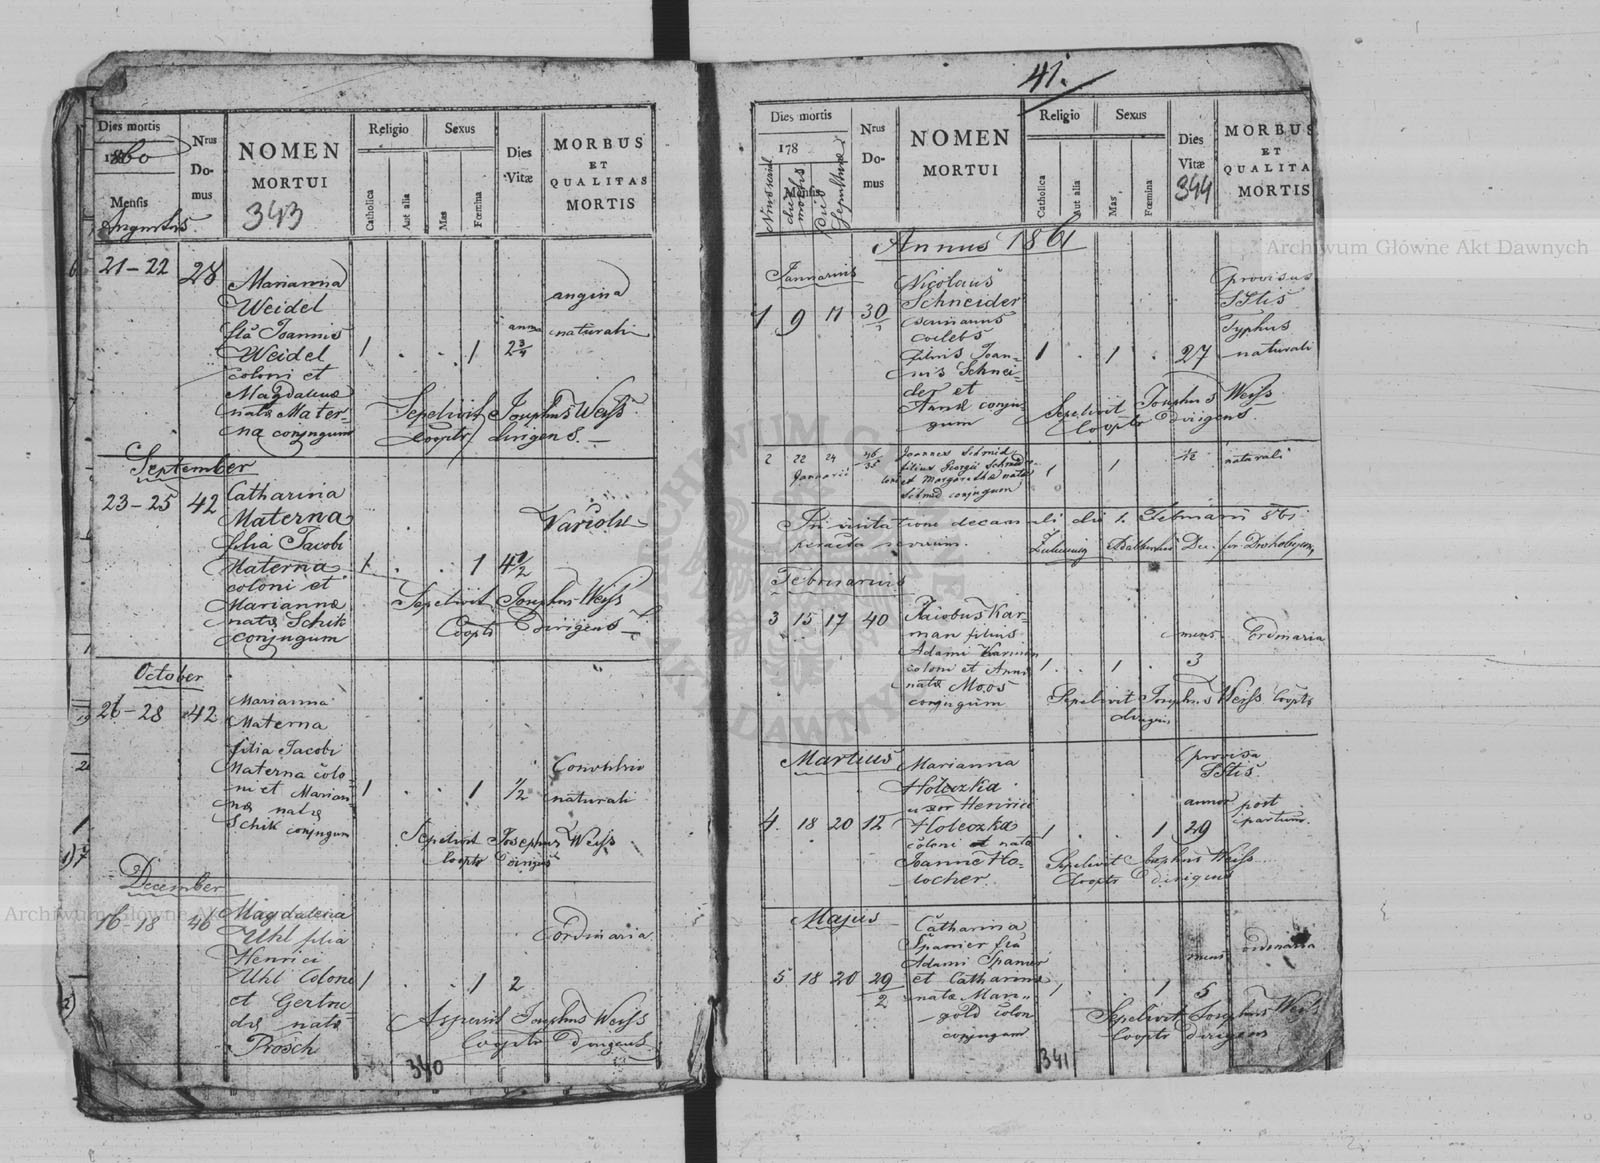 Dies mortis
1860
Mensis
Augustus
Nrus Domus
NOMEN
MORTUI
343
Religio
Catholica
Aut alia
Sexus
Mas
Fœmina
Dies
Vitæ
MORBUS
ET
QUALITAS
MORTIS
21-22 28 Marianna
Weidel
fila Joannis
Weidel
coloni et
Magdalenæ
natæ Mater-
na conjugum
1 . . 1 2 3/4
angina
naturali
Sepelivit Josephus Weiss
Cooptr dirigens.
September
23-25 42 Catharina
Materna
filia Jacobi
Materna
coloni et
Mariannæ
natæ Schik
conjugum
1 . . 1 4 1/2
Variolæ
Sepelivit Josephus Weiss
Cooptr dirigens
October
26-28 42 Marianna
Materna
filia Jacobi
Materna colo-
ni et Marian-
næ natæ
Schik conjugum
1 . . 1 1/2
naturali
Sepelivit Josephus Weiss
Cooptr dirigens
December
16-18 46 Magdalena
Uhl filia
Henrici
Uhl Coloni
et Gertru-
dis natæ
Prosch
1 . . 1 2
ordinaria
Aspersit Josephus Weiss
Cooptr dirigens
340
41.
Dies mortis
178
Mensis
Nrus
Do-
mus
NOMEN
MORTUI
Religio
Catholica
Aut alia
Sexus
Mas
Fœmina
Dies
Vitæ
344
MORBUS
ET
QUALITA
MORTIS
Annus 1861
Januarius
1 9 11 30 Nicolaus
Schneider
coelebs
filius Joan-
nis Schnei-
der et
Annæ conju-
gum
1 . 1 . 27
provisus
SStis
Typhus
naturali
Sepelivit Josephus Weiss
Cooptr dirigens
2 22 24 Joannes Schmid
Januarii
filius Georgii Schmid
et Margarethæ natæ
Schmid conjugum
1 1 1/2 naturali
In visitatione decanali die 1. Februarii 861
peracta
Februarius
3 15 17 40 Jacobus Kar-
man filius
Adami Karman
coloni et Annæ
natæ Moos
conjugum
1 . 1 . mens. 3
Ordinaria
Sepelivit Josephus Weiss Cooptr
dirigens
Martius
4. 18 20 12 Marianna
Holeczka
uxor Henrici
Holeczka
coloni et nata
Joanne Ho-
locher.
1 . . 1 annor 29
provisa
SStis.
post
partum.
Sepelivit Josephus Weiss
Cooptr dirigens
Majus
5 18 20 29/2 Catharina
Spanier fila
Adami Spanier
et Catharinæ
natæ Man-
gold colon
conjugum
1 . . 1 mens 5
ordinaria
Sepelivit Josephus Weiss
Cooptr dirigens
341
Archiwum Główne Akt Dawnych
Archiwum Główne Akt
ARCHIWUM GŁÓWNE AKT DAWNYCH